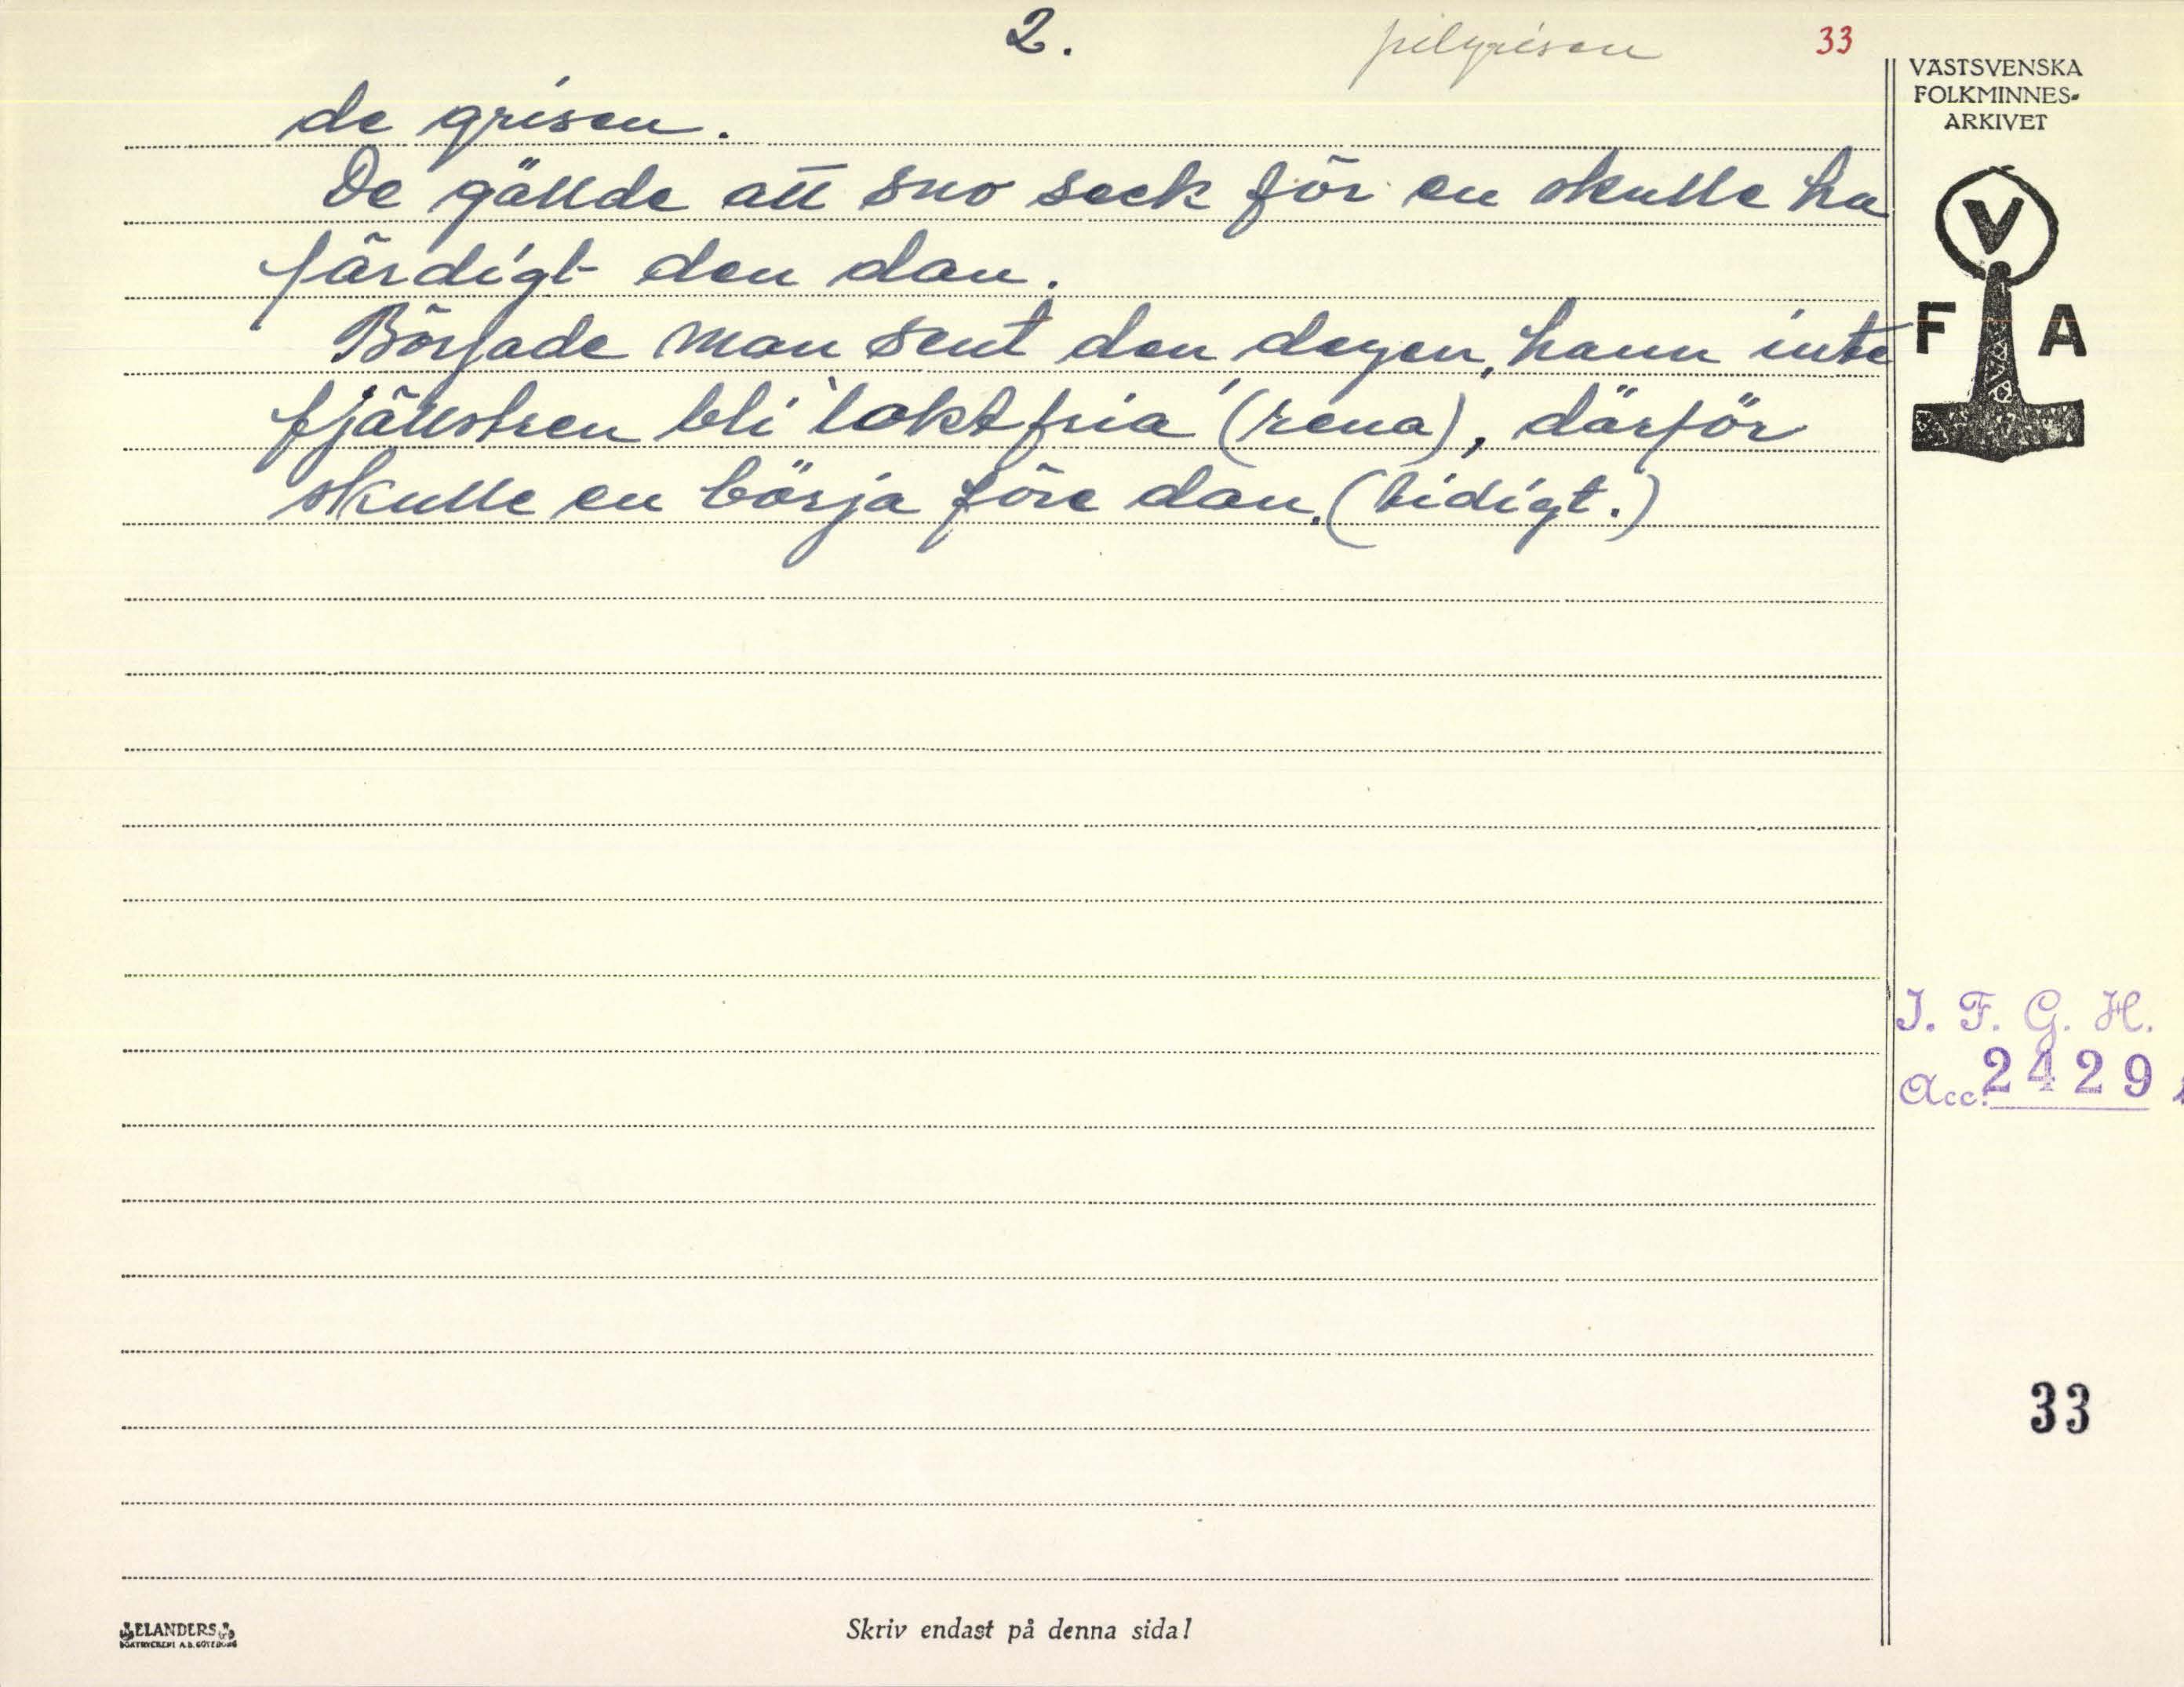 2. pilgrisen 33
VÄSTSVENSKA
FOLKMINNES-
ARKIVET
de grisen.
De gällde att sno seck för en skulle ha
färdigt den dan.
V
F A
Började man sent den dagen, hann inte
fjällstren bli 'loktfria' (rena), därför
skulle en börja före dan. (tidigt.)
I. F. G. H.
Acc. 2429
33
Skriv endast på denna sida!
ELANDERS
BOKTRYCKERI A.B. GÖTEBORG